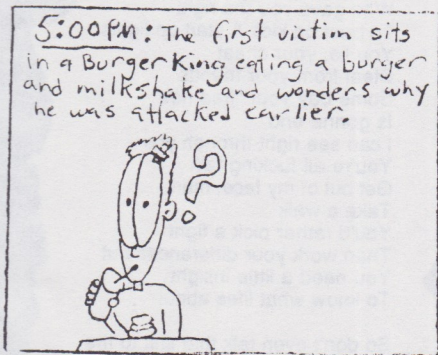 5:00PM: The first victim sits
in a Burger King eating a burger
and milkshake and wonders why
he was attacked earlier.
?